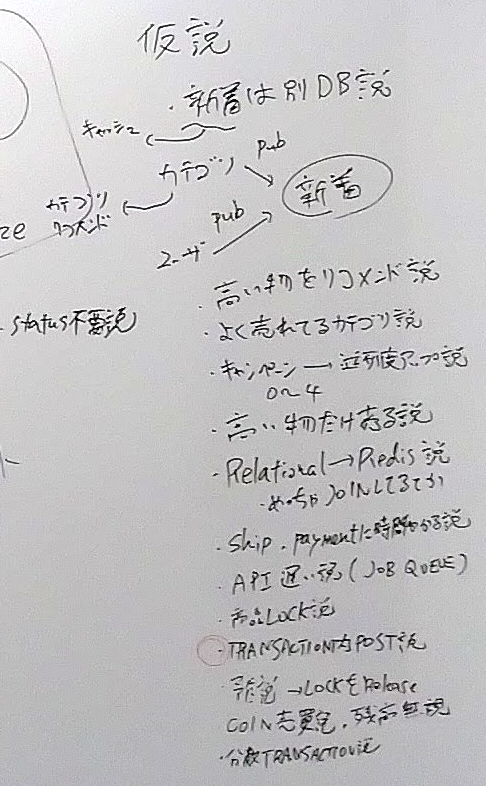 仮説
・新着は別DB説
キャッシュ
カテゴリ
pub
新着
カテゴリ
リコメンド
pub
ユーザ
ze
・status不要説
・高い物をリコメンド説
・よく売れてるカテゴリ説
・キャンペーン→並列度アップ説
0〜4
・高い物だけ売る説
・Relational→Redis説
・めっちゃJOINしてるてか
・ship, paymentに時間かかる説
・API遅い説(JOB QUEUE)
・商品LOCK説
・TRANSACTION内POST説
→LOCKをRelease
・分散TRANSACTION説